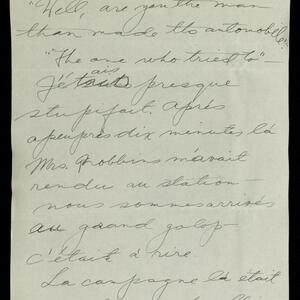 "Well, are you the man
than made tts automobile"
"The one who tried to" -
J'étais presque
stupifait. Après
apeuprès dix minutes là
Mrs. Robbins m'avait
rendu au station -
nous sommes arrivés
au grand galop -
c'était à rire.
La campagne là était